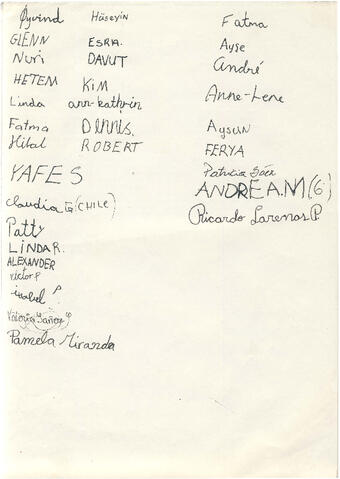 Øyvind
GLENN
Nuri
HETEM
Linda
Fatma
Hilal
YAFES
Claudia G (CHILE)
Patty
LINDA R.
ALEXANDER
Victor P
isabel P.
Pamela Miranda
Hüseyin
ESRA.
DAVUT
KIM
ann-kathrin
DENNIS.
ROBERT
Fatma
Ayşe
André
Anne-Lene
Aysun
FERYA
Patricia Sáez
ANDREA.M (6)
Ricardo Larenas P.